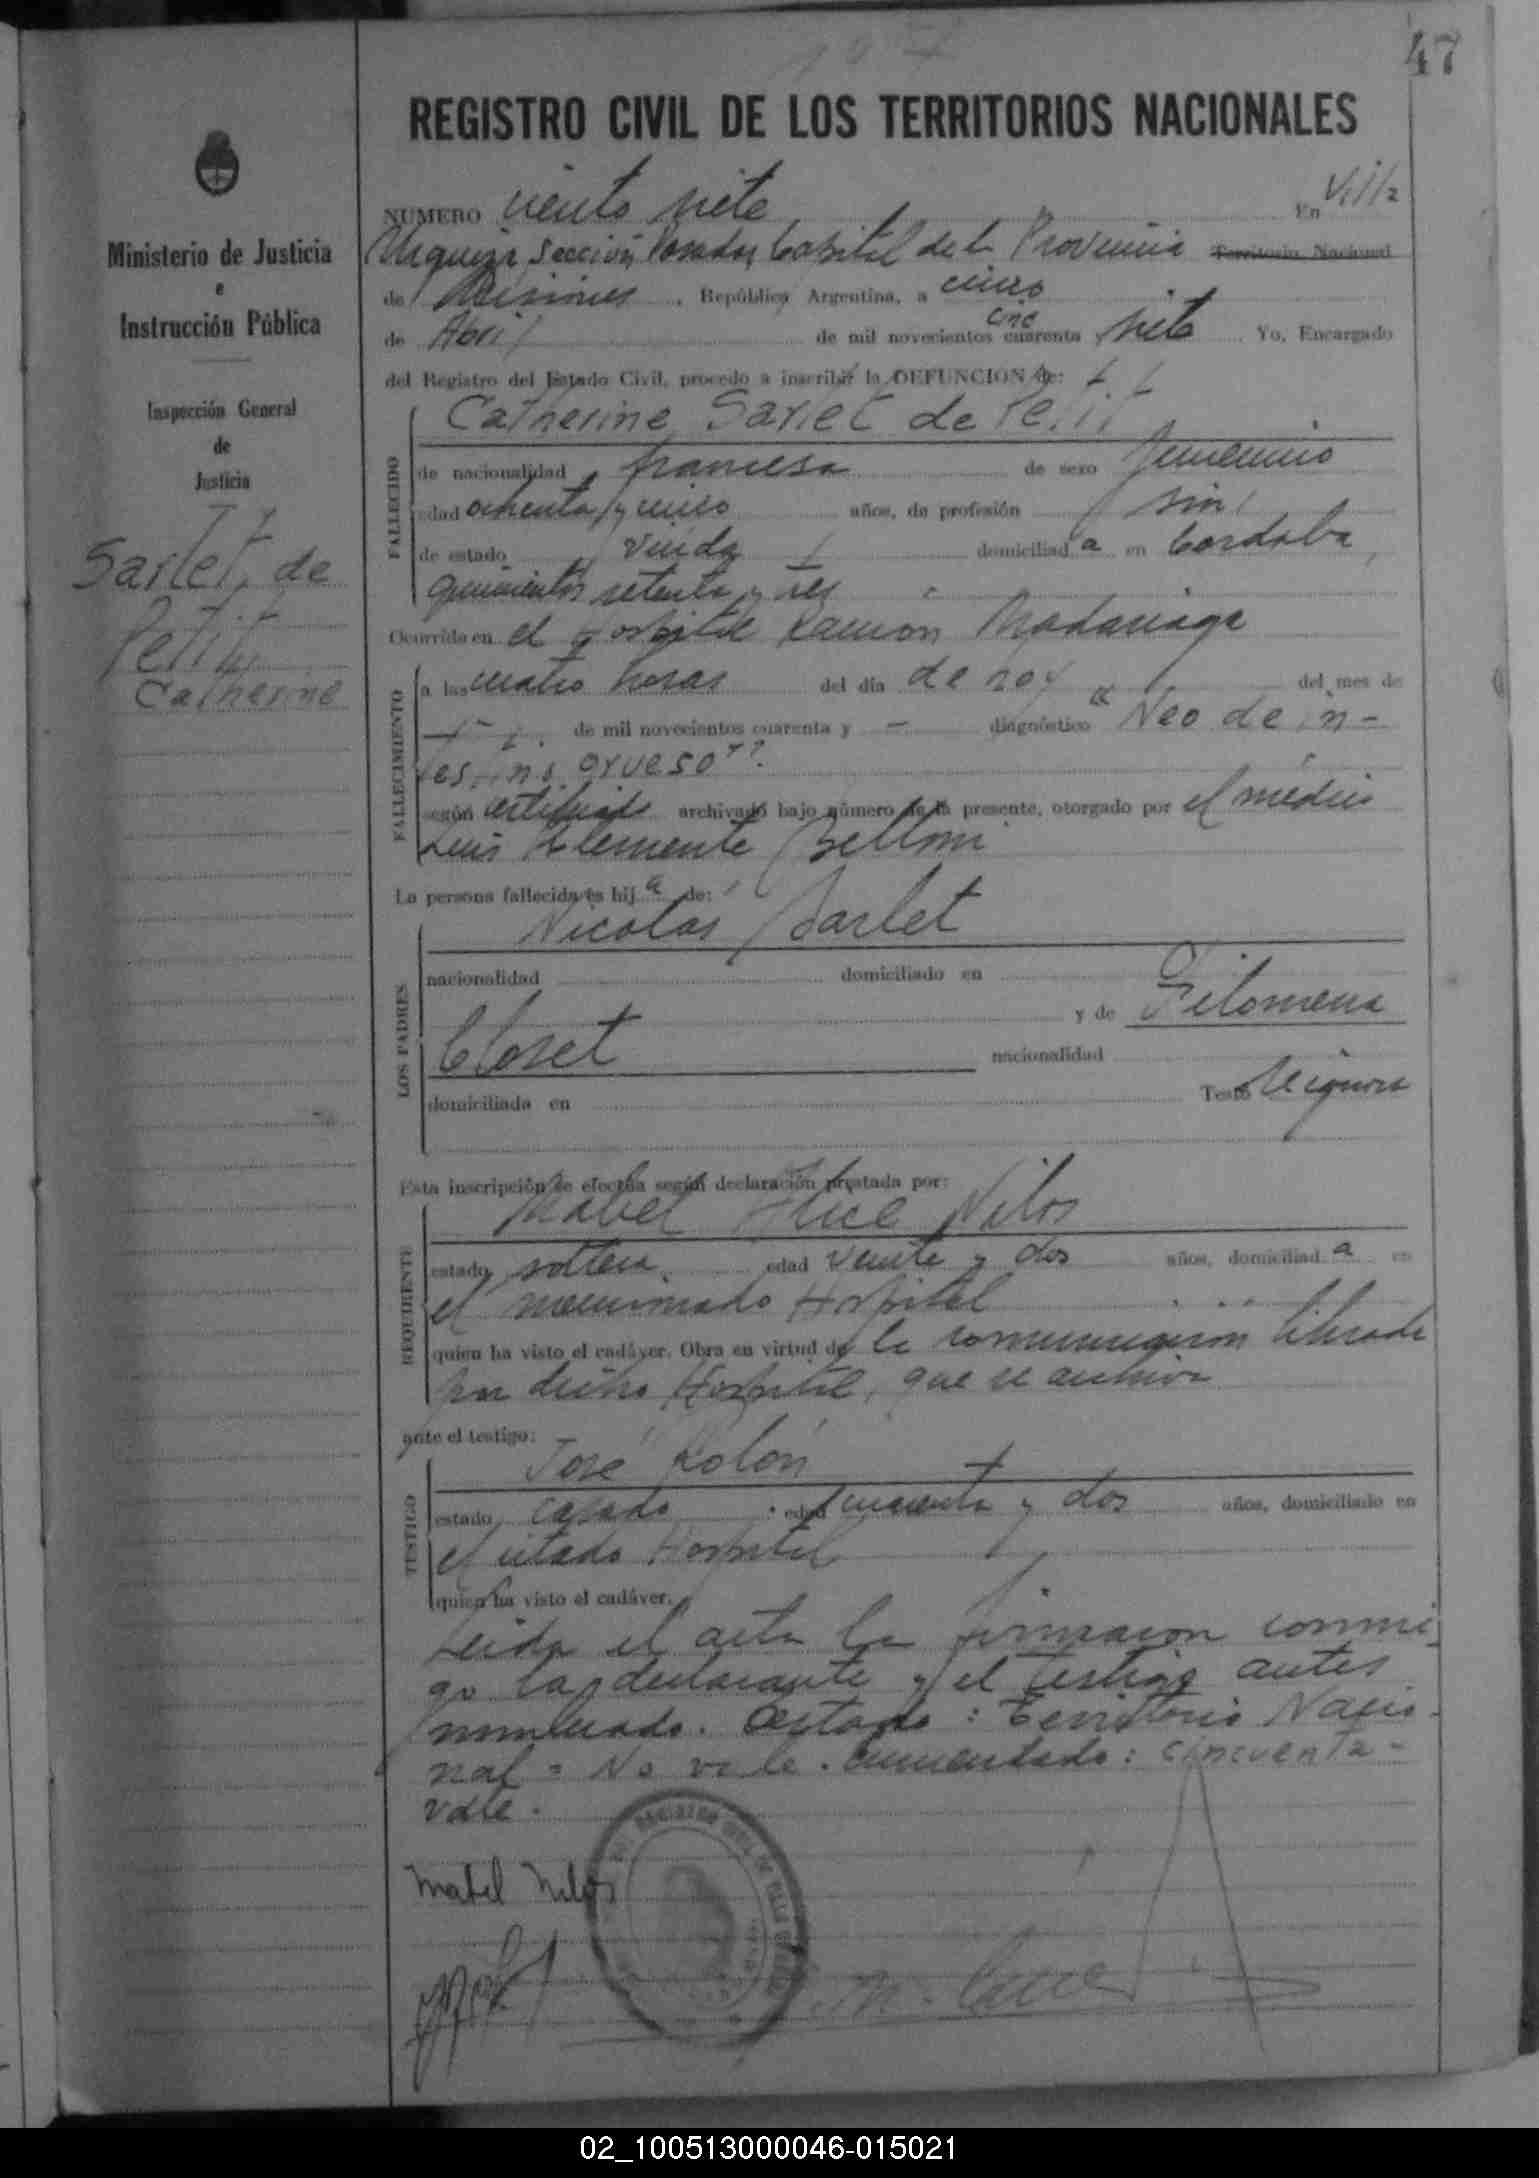 47
REGISTRO CIVIL DE LOS TERRITORIOS NACIONALES
Ministerio de Justicia
e
Instrucción Pública
Inspección General
de
Justicia
Sarlet de
Petit
Catherine
NUMERO ciento siete En Villa
Urquiza Sección Posadas Capital de la Provincia Territorio Nacional
de Misiones, República Argentina, a cinco
de Abril de mil novecientos cuarenta cinc siete Yo, Encargado
del Registro del Estado Civil, procedo a inscribir la DEFUNCION de:
Catherine Sarlet de Petit
FALLECIDO
de nacionalidad francesa de sexo femenino
edad ochenta y cinco años, de profesión sin
de estado viuda domiciliad a en Cordoba
quinientos setenta y tres
Ocurrida en el Hospital Ramón Madariaga
FALLECIMIENTO
a las cuatro horas del día de hoy del mes de
de mil novecientos cuarenta y — diagnóstico "Neo de in-
testino grueso".
según certificado archivado bajo número de la presente, otorgado por el médico
Luis Clemente Belloni
La persona fallecida es hij a de:
Nicolás Sarlet
LOS PADRES
nacionalidad domiciliado en
y de Filomena
Closet nacionalidad
domiciliada en Testo
Esta inscripción se efectúa según declaración prestada por:
Mabel Alice Nilos
REQUIRENTE
estado soltera edad veinte y dos años, domiciliad a en
el mencionado Hospital
quien ha visto el cadáver. Obra en virtud de la comunicación librada
por dicho Hospital, que se archiva
ante el testigo:
José Rolón
TESTIGO
estado casado edad cuarenta y dos años, domiciliado en
el citado Hospital
quien ha visto el cadáver.
Leida el acta la firmaron conmi-
go la declarante y el testigo antes
nombrado. Testado: Territorio Nacio-
nal = No vale. Enmentado: cincuenta -
vale.
Mabel Nilos
02_100513000046-015021